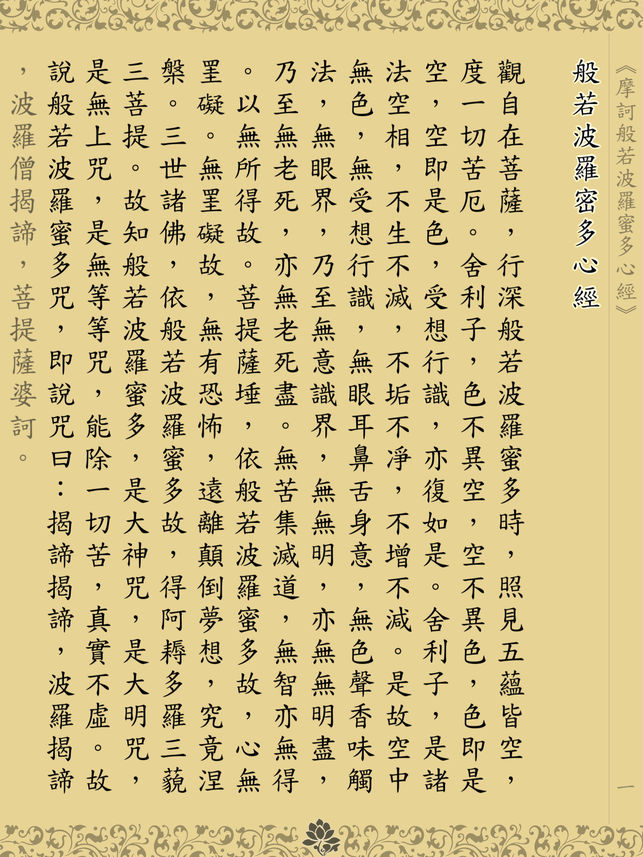 《摩訶般若波羅蜜多心經》
般若波羅密多心經
觀自在菩薩，行深般若波羅蜜多時，照見五蘊皆空，
度一切苦厄。舍利子，色不異空，空不異色，色即是
空，空即是色，受想行識，亦復如是。舍利子，是諸
法空相，不生不滅，不垢不凈，不增不減。是故空中
無色，無受想行識，無眼耳鼻舌身意，無色聲香味觸
法，無眼界，乃至無意識界，無無明，亦無無明盡，
乃至無老死，亦無老死盡。無苦集滅道，無智亦無得
。以無所得故。菩提薩埵，依般若波羅蜜多故，心無
罣礙。無罣礙故，無有恐怖，遠離顛倒夢想，究竟涅
槃。三世諸佛，依般若波羅蜜多故，得阿耨多羅三藐
三菩提。故知般若波羅蜜多，是大神咒，是大明咒，
是無上咒，是無等等咒，能除一切苦，真實不虛。故
說般若波羅蜜多咒，即說咒曰：揭諦揭諦，波羅揭諦
，波羅僧揭諦，菩提薩婆訶。
一